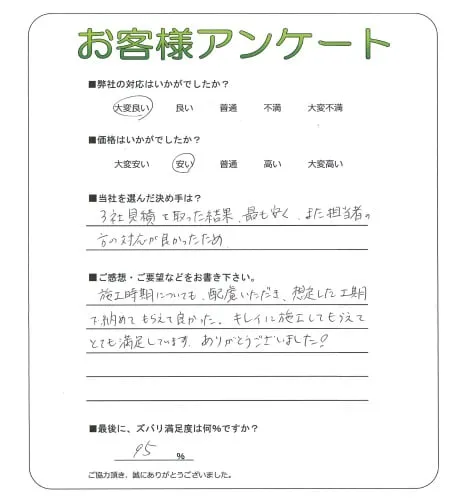 お客様アンケート
■弊社の対応はいかがでしたか?
大変良い 良い 普通 不満 大変不満
■価格はいかがでしたか?
大変安い 安い 普通 高い 大変高い
■当社を選んだ決め手は?
3社見積を取った結果、最も安く、また担当者の
方の対応が良かったため
■ご感想・ご要望などをお書き下さい。
施工時期についても、配慮いただき、想定した工期
で納めてもらえて良かった。キレイに施工してもらえて
とても満足しています。ありがとうございました!
■最後に、ズバリ満足度は何%ですか?
95 %
ご協力頂き、誠にありがとうございました。